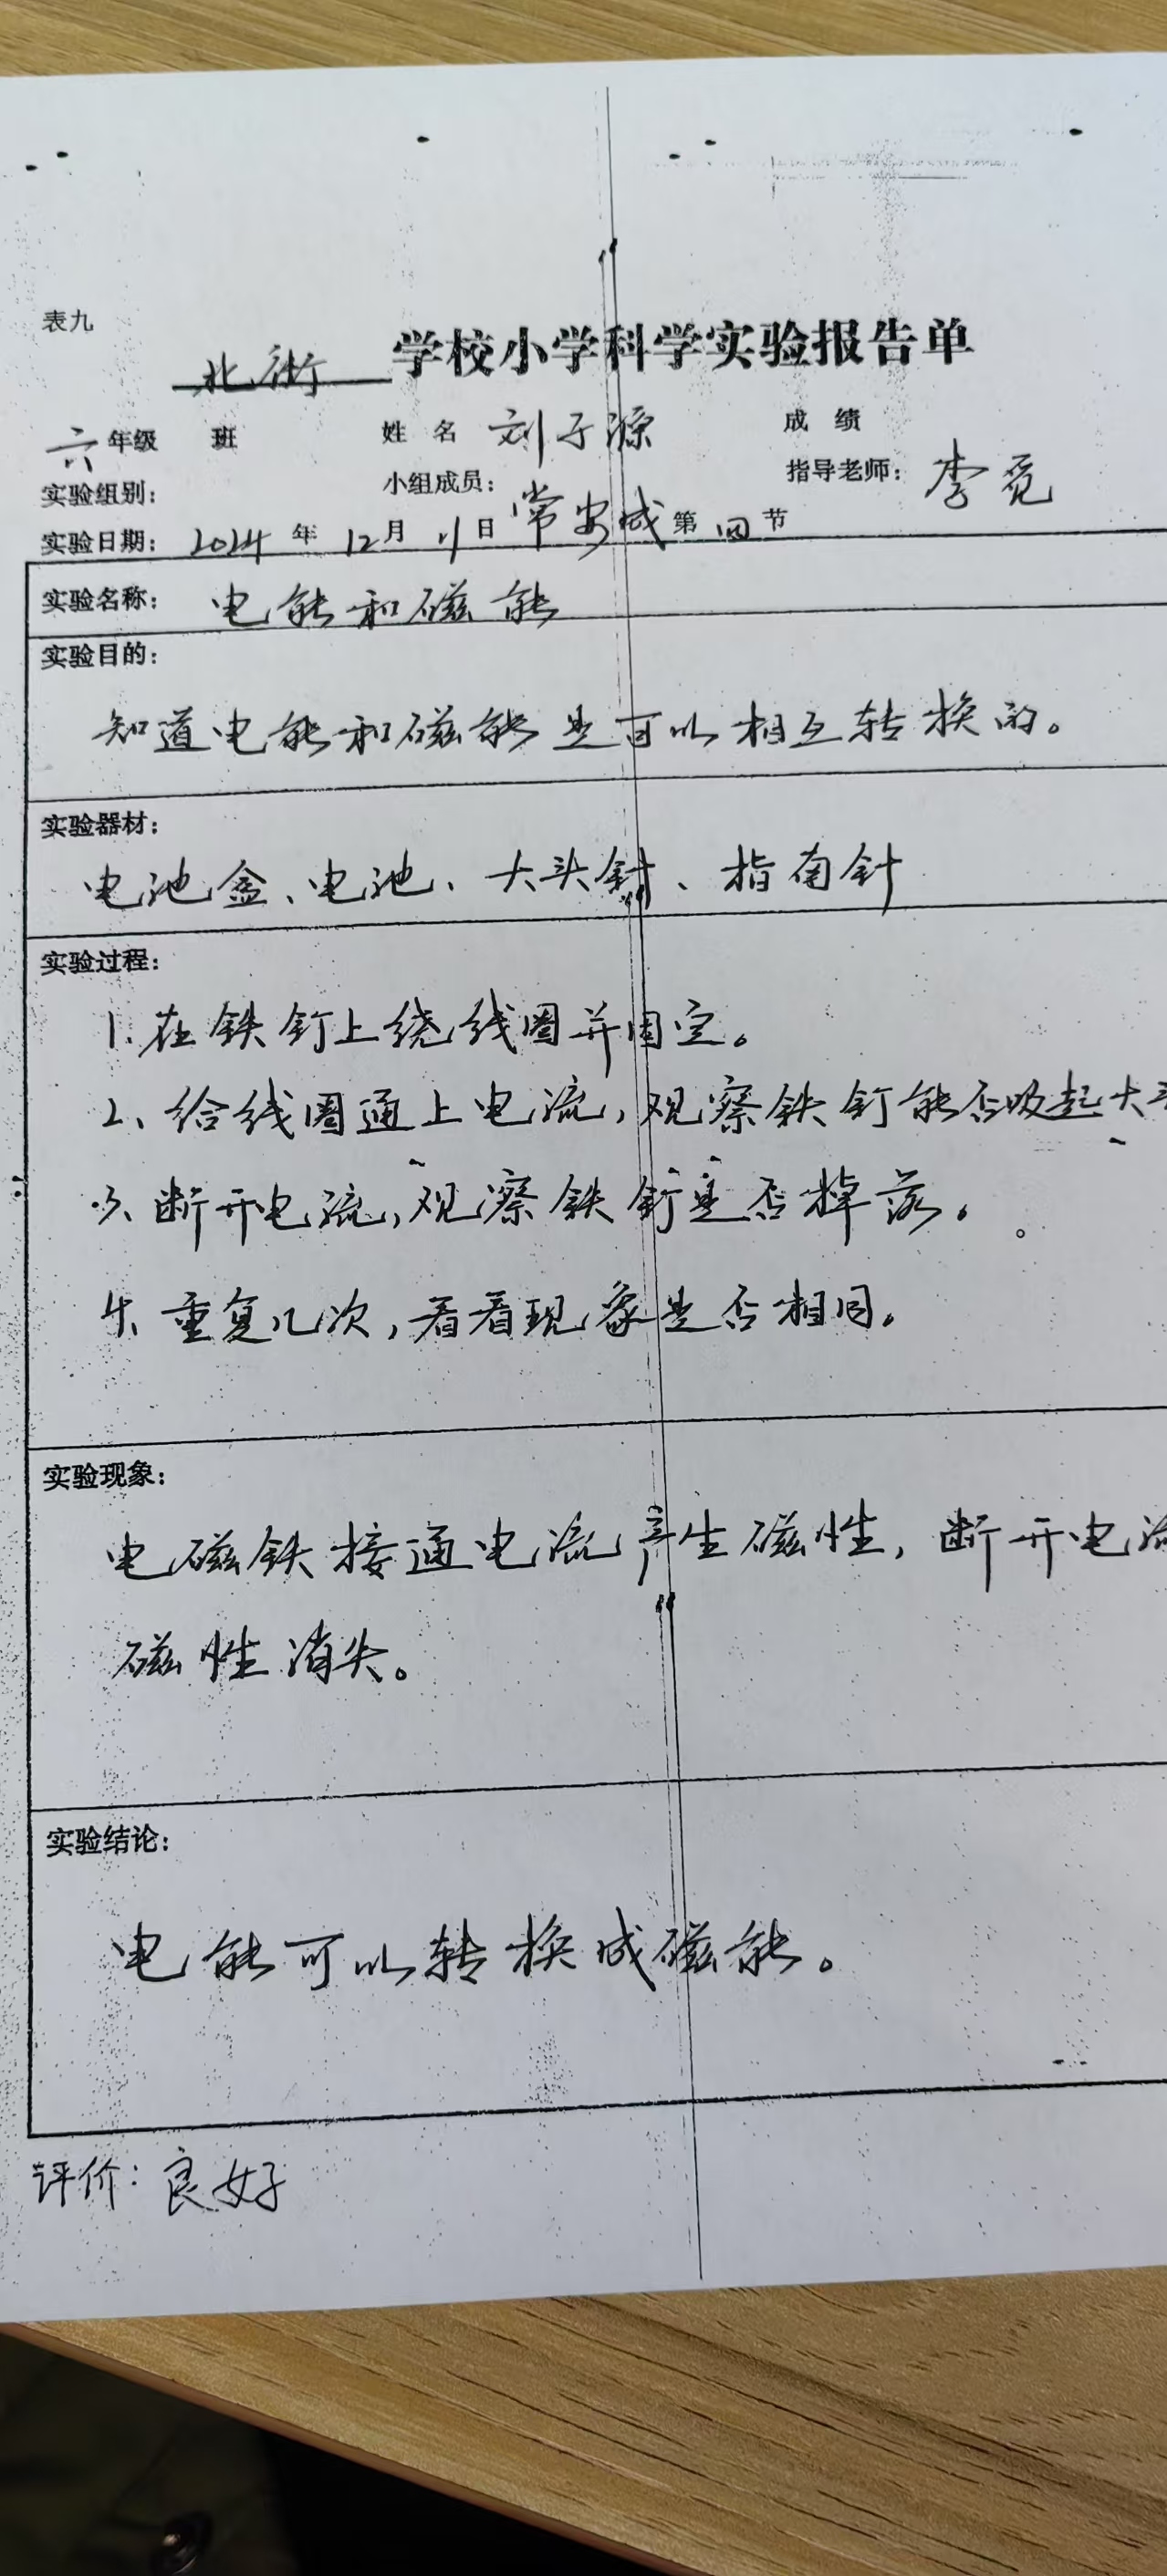 表九
北街学校小学科学实验报告单
六年级 班 姓名 刘子源 成绩
实验组别: 小组成员: 常安成 指导老师: 李觅
实验日期: 2024年12月11日 第四节
实验名称: 电能和磁能
实验目的:
知道电能和磁能是可以相互转换的。
实验器材:
电池盒、电池、大头针、指南针
实验过程:
1.在铁钉上绕线圈并固定。
2、给线圈通上电流,观察铁钉能否吸起大头
3、断开电流,观察铁钉是否掉落。
4、重复几次,看看现象是否相同。
实验现象:
电磁铁接通电流产生磁性,断开电流
磁性消失。
实验结论:
电能可以转换成磁能。
评价:良好